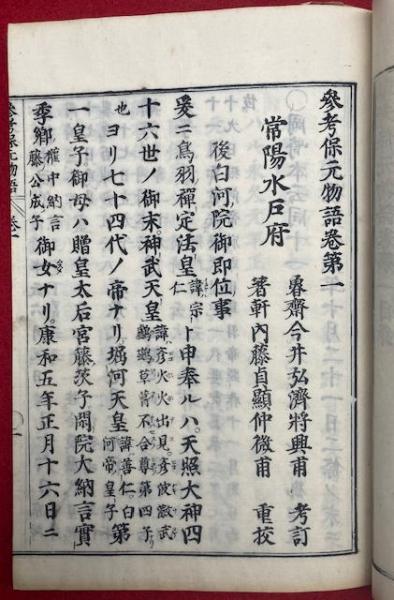 參考保元物語卷第一
常陽水戶府
魯齋今井弘濟將興甫 考訂
箸軒內藤貞顯仲微甫 重校
後白河院御即位事
爰ニ鳥羽禪定法皇諱宗仁ト申奉ルハ。天照大神四
十六世ノ御末。神武天皇諱彥火火出見。彥波瀲武鸕鷀草葺不合尊第四子
也ヨリ七十四代ノ帝ナリ。堀河天皇諱善仁。白河帝皇子第
一皇子御母ハ贈皇太后宮藤茨子閑院大納言實
季卿權中納言藤公成子御女ナリ。康和五年正月十六日ニ
參考保元物語 卷一